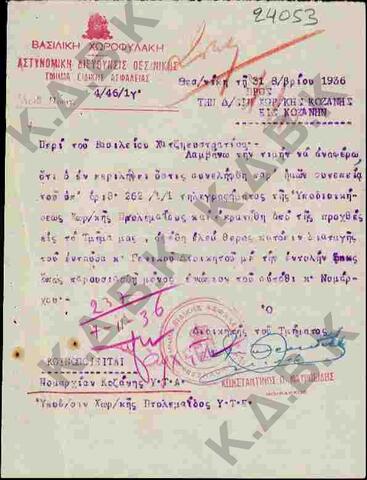 24053
ΒΑΣΙΛΙΚΗ ΧΩΡΟΦΥΛΑΚΗ
ΑΣΤΥΝΟΜΙΚΗ ΔΙΕΥΘΥΝΣΙΣ ΘΕΣ/ΝΙΚΗΣ
ΤΜΗΜΑ ΕΙΔΙΚΗΣ ΑΣΦΑΛΕΙΑΣ
4/46/1γ'
Θεσ/νίκη τῇ 31 8/βρίου 1936
ΠΡΟΣ
ΤΗΝ Δ/ΣΙΝ ΧΩΡ/ΚΗΣ ΚΟΖΑΝΗΣ
ΕΙΣ ΚΟΖΑΝΗΝ
Περί τοῦ Βασιλείου Χατζηευστρατίου
Λαμβάνω τήν τιμήν νά ἀναφέρω
ὅτι ὁ ἐν περιλήψει ὅστις συνελήφθη παρ' ἡμῶν συνεπείᾳ
τοῦ ὑπ' ἀριθ 262/1/1 τηλεγραφήματος τῆς Ὑποδιοική-
σεως Χωρ/κῆς Πτολεμαΐδος καί ἐκρατήθη ἀπό τῆς προχθές
εἰς τό Τμῆμα μας, ἀφέθη ἐλεύθερος κατόπιν διαταγῆς
τοῦ ἐνταῦθα κ Γενικοῦ Διοικητοῦ μέ τήν ἐντολήν ὅπως
ὅπως παρουσιασθῇ μόνος ἐνώπιον τοῦ αὐτόθι κ Νομάρ-
χου
Ὁ
Διοικητής τοῦ Τμήματος
ΚΟΙΝΟΠΟΙΕΙΤΑΙ
Νομαρχίαν Κοζάνης Υ.Τ.Α.
Ὑποδ/σιν Χωρ/κῆς Πτολεμαΐδος Υ.Τ.Ε.
ΚΩΝΣΤΑΝΤΙΝΟΣ
Κ.Δ.Β.Κ